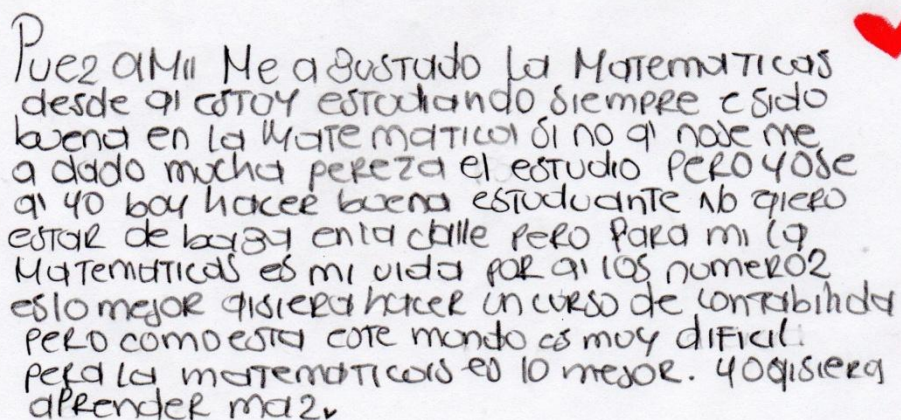 Puez a mii Me a gustado La Matematicas
desde qi estoy estudiando siempre e sido
buena en la Matematica si no qi nose me
a dado mucha pereza el estudio pero yo se
qi yo boy hacer buena estuduante No qiero
estar de baga en la calle pero para mi la
Matematicas es mi vida por qi los numeroz
es lo mejor qisiera hacer un curso de contabilida
pero como esta este mundo es muy dificil
pera la matematicas es lo mejor. yo qisiera
aprender maz.